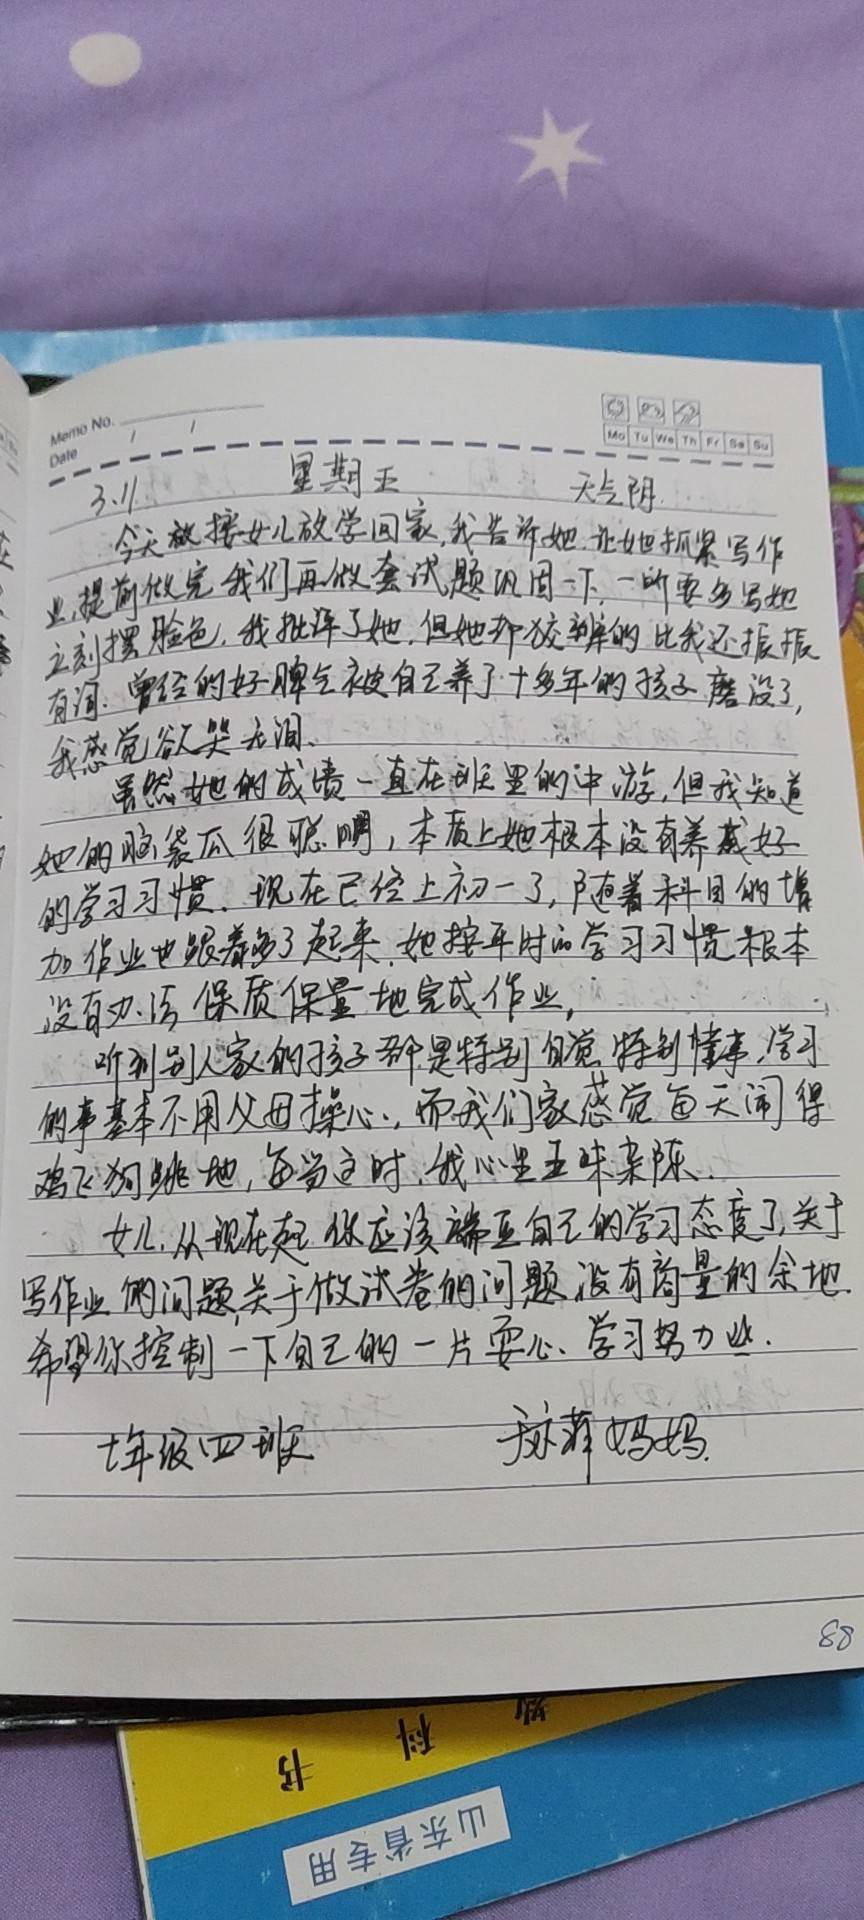 Memo No.
Date / /
Mo Tu We Th Fr Sa Su
3.11 星期五 天气阴
今天放接女儿放学回家,我告诉她,让她抓紧写作
业,提前做完我们再做套试题巩固一下,一听要多写她
立刻摆脸色,我批评了她,但她却狡辩的比我还振振
有词.曾经的好脾气被自己养了十多年的孩子磨没了,
我感觉欲哭无泪、
虽然她的成绩一直在班里的中游,但我知道
她的脑袋瓜很聪明,本质上她根本没有养成好
的学习习惯.现在已经上初一了,随着科目的增
加作业也跟着多了起来,她按平时的学习习惯根本
没有办法保质保量地完成作业,
听到别人家的孩子都是特别自觉特别懂事,学习
的事基本不用父母操心.,而我们家感觉每天闹得
鸡飞狗跳地,每当这时,我心里五味杂陈.
女儿,从现在起你应该端正自己的学习态度了,关于
写作业的问题,关于做试卷的问题,没有商量的余地.
希望你控制一下自己的一片耍心、学习努力些.
七年级四班 菲妈妈.
88
书 科
山东省专用